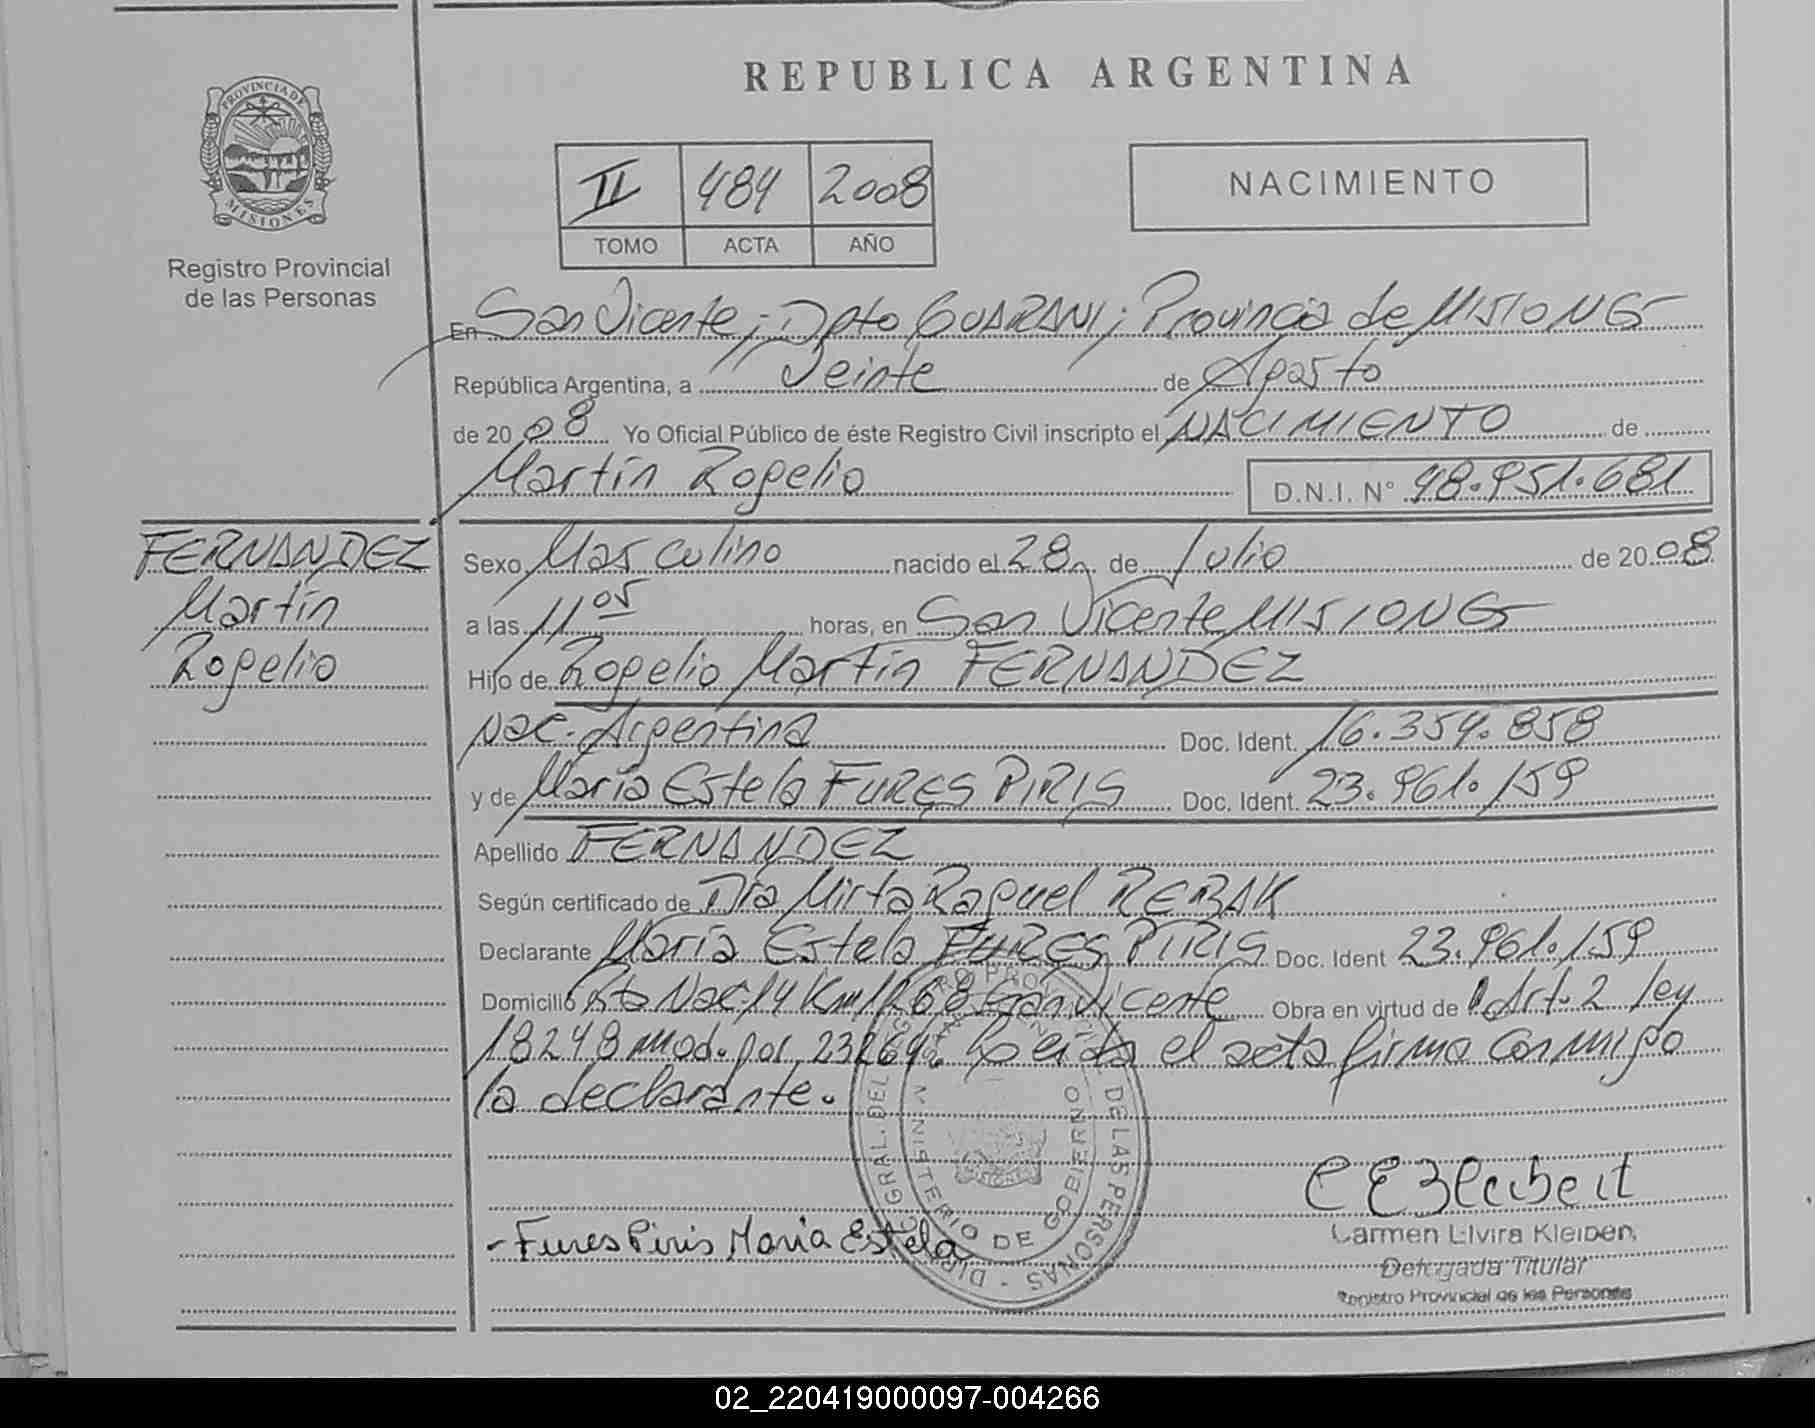 REPUBLICA ARGENTINA
PROVINCIA DE
MISIONES
Registro Provincial
de las Personas
II 484 2008
TOMO ACTA AÑO
NACIMIENTO
En San Vicente; Dpto GUARANI; Provincia de MISIONES
República Argentina, a Veinte de Agosto
de 20 08 Yo Oficial Público de éste Registro Civil inscripto el NACIMIENTO de
Martín Rogelio D.N.I. N° 48.951.681
FERNANDEZ
Martín
Rogelio
Sexo Masculino nacido el 28 de Julio de 20 08
a las 11 05 horas, en San Vicente MISIONES
Hijo de Rogelio Martín FERNANDEZ
Nac. Argentina Doc. Ident. 16.354.858
y de María Estela FURES PIRIS Doc. Ident. 23.961.159
Apellido FERNANDEZ
Según certificado de Dra Mirta Raquel REBAK
Declarante María Estela FURES PIRIS Doc. Ident 23.961.159
Domicilio Rta Nac. 14 Km 1268 San Vicente Obra en virtud de Art. 2 ley
18248 mod. por 23264. Leída el acta firma conmigo
la declarante.
DE LAS PERSONAS
MINISTERIO DE GOBIERNO
- Fures Piris Maria Estela
Carmen Elvira Kleiben
Delegada Titular
Registro Provincial de las Personas
02_220419000097-004266